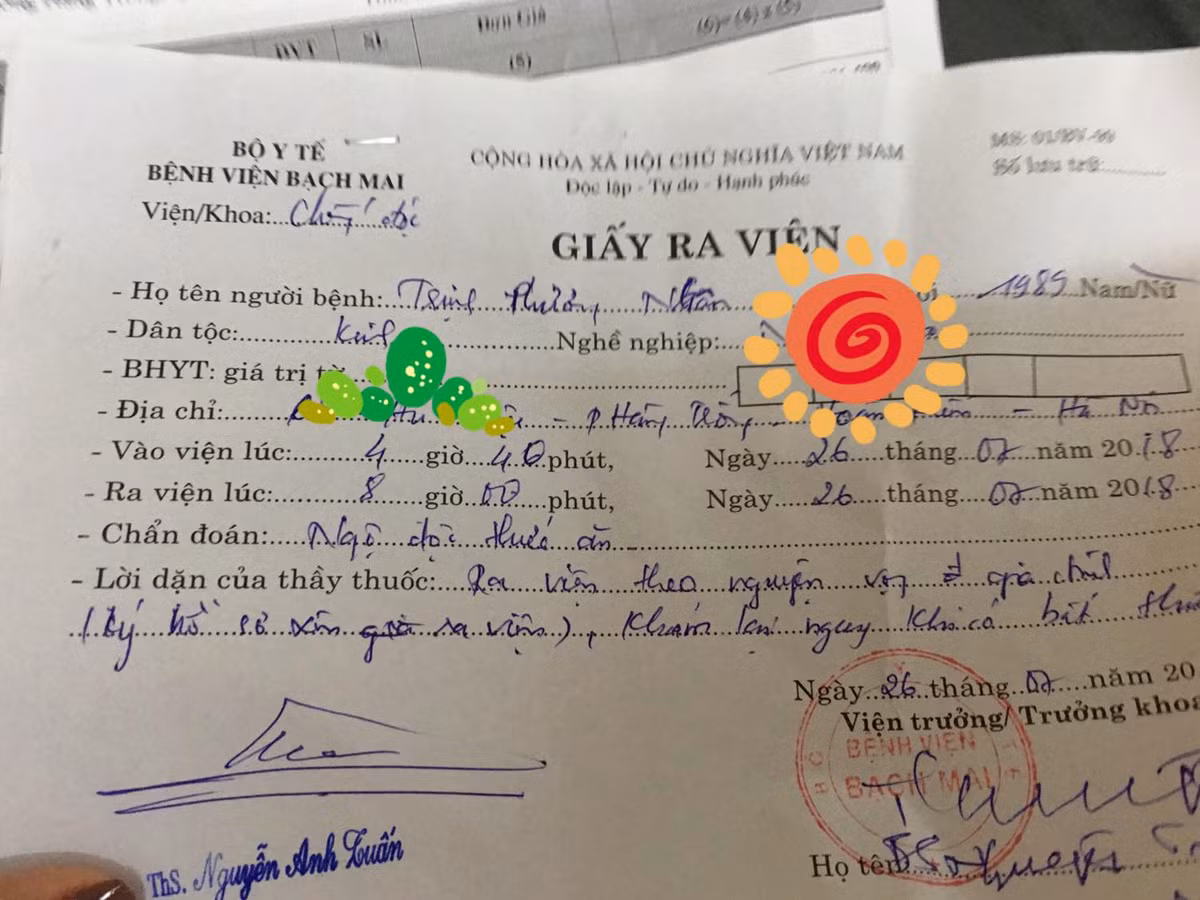 ĐVT SL Đơn Giá
(5) (6) = (4) x (5)
BỘ Y TẾ
BỆNH VIỆN BẠCH MAI
Viện/Khoa: Chống độc
CỘNG HÒA XÃ HỘI CHỦ NGHĨA VIỆT NAM
Độc lập - Tự do - Hạnh phúc
Số lưu trữ:
GIẤY RA VIỆN
- Họ tên người bệnh: Trịnh Phương Nhân 1989 Nam/Nữ
- Dân tộc: Kinh Nghề nghiệp:
- BHYT: giá trị từ
- Địa chỉ: - P Hàng Trống - Hà Nội
- Vào viện lúc: 4 giờ 40 phút, Ngày 26 tháng 07 năm 2018
- Ra viện lúc: 8 giờ 00 phút, Ngày 26 tháng 07 năm 2018
- Chẩn đoán: Ngộ độc thức ăn
- Lời dặn của thầy thuốc: Ra viện theo nguyện vọng gia đình
(ký hồ sơ xin ra viện), Khám lại ngay khi có bất thư
Ngày 26 tháng 07 năm 20
Viện trưởng/ Trưởng khoa
BỆNH VIỆN
BẠCH MAI
Họ tên
ThS. Nguyễn Anh Tuấn